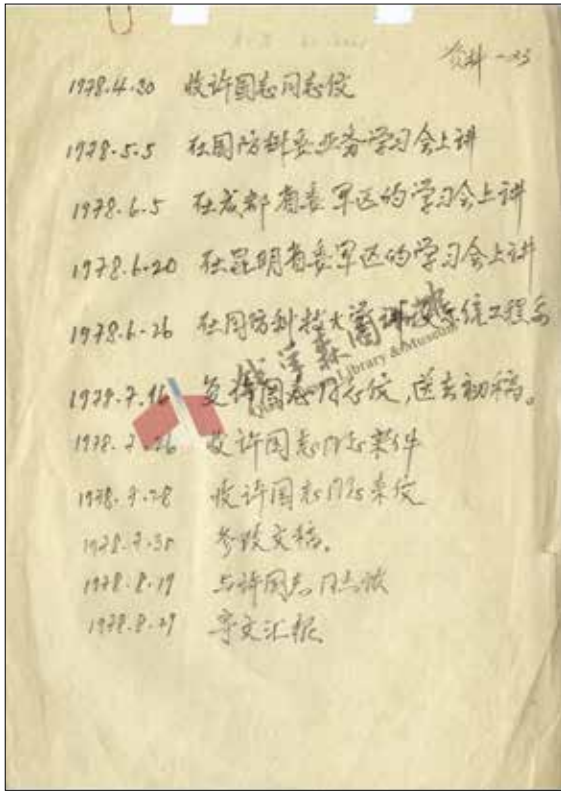 资料-25
1978.4.30 收许国志同志信
1978.5.5 在国防科委业务学习会上讲
1978.6.5 在成都省委军区的学习会上讲
1978.6.20 在昆明省委军区的学习会上讲
1978.6.26 在国防科技大学讲授系统工程系
1978.7.16 复许国志同志信,送去初稿。
1978.7.26 收许国志同志来件
1978.7.28 收许国志同志来信
1978.7.30 修改文稿。
1978.8.19 与许国志同志谈
1978.8.29 文汇报
钱学森图书馆
Library & Museum